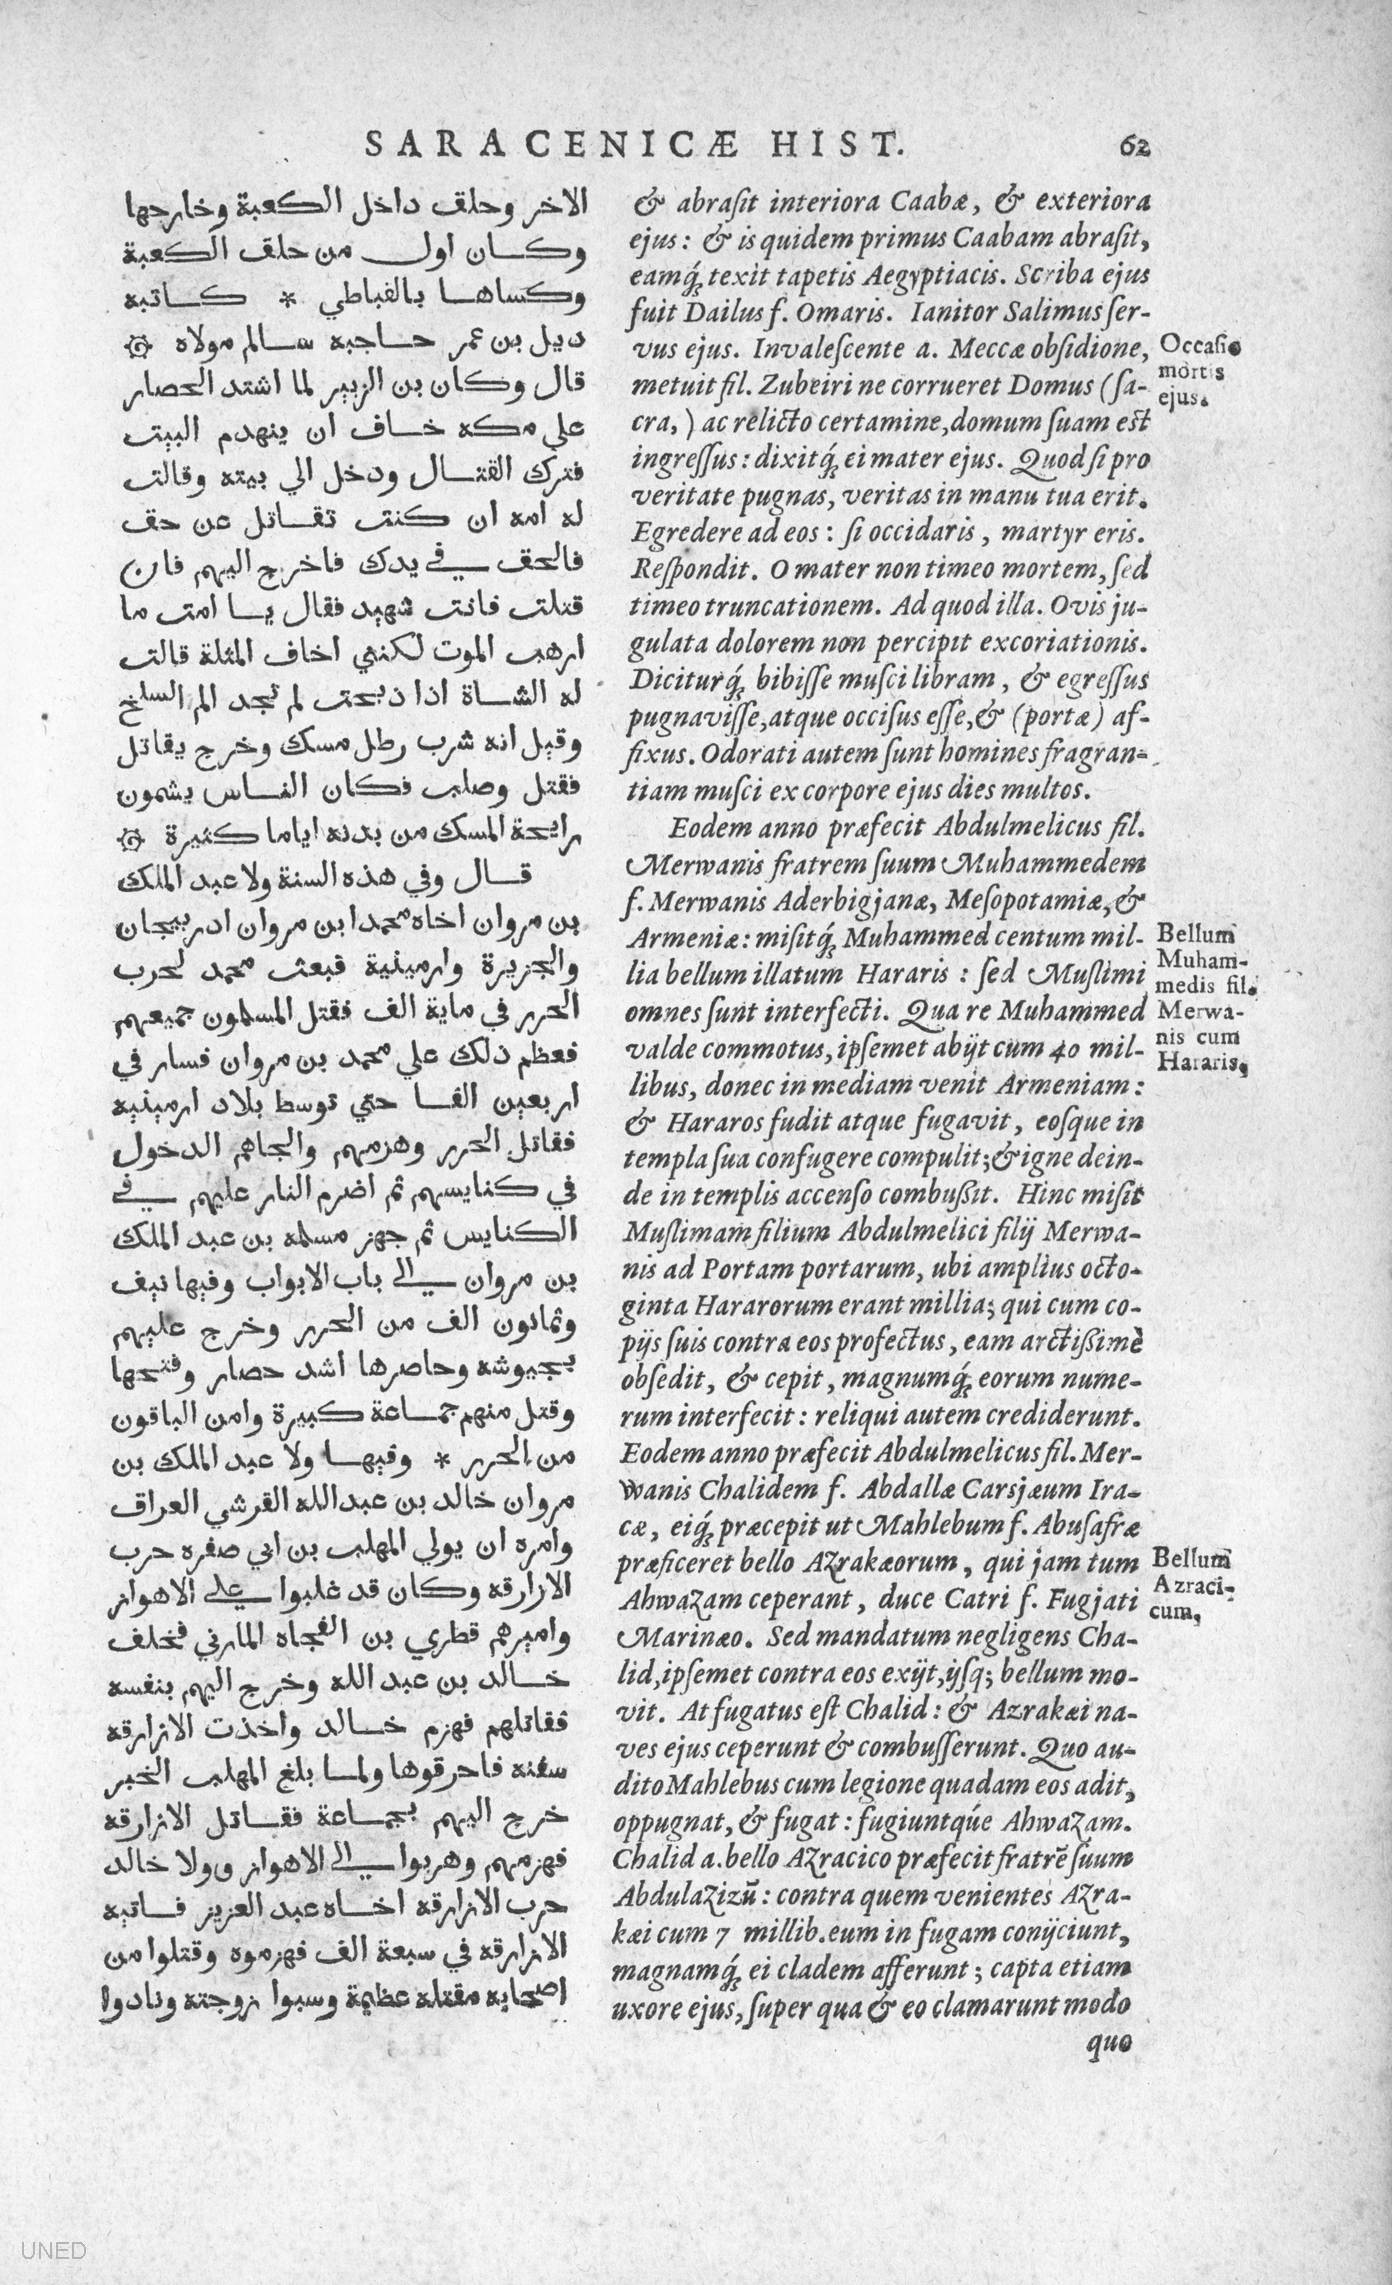 SARACENICÆ HIST. 62
الاخر وحلق داخل الكعبة وخارجها
وكان اول من حلق الكعبة
وكساها بالقباطي * كاتبه
ديل بن عمر حاجبه سالم مولاه ۞
قال وكان بن الزبير لما اشتد الحصار
علي مكه خاف ان ينهدم البيت
فترك القتال ودخل الي بيته وقالت
له امه ان كنت تقاتل عن حق
فالحق في يدك فاخرج اليهم فان
قتلت فانت شهيد فقال يا امت ما
ارهب الموت لكنني اخاف المثلة قالت
له الشاة اذا ذبحت لم تجد الم السلخ
وقيل انه شرب رطل مسك وخرج يقاتل
فقتل وصلب فكان الناس يشمون
رايحة المسك من بدنه اياما كثيرة ۞
قال وفي هذه السنة ولا عبد الملك
بن مروان اخاه محمد ابن مروان ادربيجان
والجزيرة وارمينية فبعث محمد لحرب
الحرر في ماية الف فقتل المسلمون جميعهم
فعظم ذلك علي محمد بن مروان فسار في
اربعين الفا حتي توسط بلاد ارمينيه
فقاتل الحرر وهزمهم والجاهم الدخول
في كنايسهم ثم اضرم النار عليهم في
الكنايس ثم جهز مسلمه بن عبد الملك
بن مروان الي باب الابواب وفيها نيف
وثمانون الف من الحرر وخرج عليهم
بجيوشه وحاصرها اشد حصار وفتحها
وقتل منهم جماعة كبيرة وامن الباقون
من الحرر * وفيها ولا عبد الملك بن
مروان خالد بن عبد الله القرشي العراق
وامره ان يولي المهلب بن ابي صفره حرب
الازارقه وكان قد غلبوا علي الاهواز
واميرهم قطري بن الفجاه المارني فخلف
خالد بن عبد الله وخرج اليهم بنفسه
فقاتلهم فهزم خالد واخذت الازارقه
سفنه فاحرقوها ولما بلغ المهلب الخبر
خرج اليهم بجماعة فقاتل الازارقه
فهزمهم وهربوا الي الاهواز وولا خالد
حرب الازارقه اخاه عبد العزيز فاتيه
الازارقه في سبعة الف فهزموه وقتلوا من
اصحابه مقتله عظيمة وسبوا زوجته ونادوا
& abrasit interiora Caabæ, & exteriora
ejus: & is quidem primus Caabam abrasit,
eamq́; texit tapetis Aegyptiacis. Scriba ejus
fuit Dailus f. Omaris. Ianitor Salimus ser-
vus ejus. Invalescente a. Meccæ obsidione,
metuit fil. Zubeiri ne corrueret Domus (sa-
cra,) ac relicto certamine, domum suam est
ingressus: dixitq́; ei mater ejus. Quod si pro
veritate pugnas, veritas in manu tua erit.
Egredere ad eos: si occidaris, martyr eris.
Respondit. O mater non timeo mortem, sed
timeo truncationem. Ad quod illa. Ovis ju-
gulata dolorem non percipit excoriationis.
Diciturq́; bibisse musci libram, & egressus
pugnavisse, atque occisus esse, & (portæ) af-
fixus. Odorati autem sunt homines fragran-
tiam musci ex corpore ejus dies multos.
Eodem anno præfecit Abdulmelicus fil.
Merwanis fratrem suum Muhammedem
f. Merwanis Aderbigjanæ, Mesopotamiæ, &
Armeniæ: misitq́; Muhammed centum mil-
lia bellum illatum Hararis: sed Muslimi
omnes sunt interfecti. Qua re Muhammed
valde commotus, ipsemet abijt cum 40 mil-
libus, donec in mediam venit Armeniam:
& Hararos fudit atque fugavit, eosque in
templa sua confugere compulit; & igne dein-
de in templis accenso combußit. Hinc misit
Muslimam filium Abdulmelici filij Merwa-
nis ad Portam portarum, ubi amplius octo-
ginta Hararorum erant millia; qui cum co-
pijs suis contra eos profectus, eam arctißimè
obsedit, & cepit, magnumq́; eorum nume-
rum interfecit: reliqui autem crediderunt.
Eodem anno præfecit Abdulmelicus fil. Mer-
wanis Chalidem f. Abdallæ Carsjæum Ira-
cæ, eiq́; præcepit ut Mahlebum f. Abusafræ
præficeret bello Azrakæorum, qui jam tum
Ahwazam ceperant, duce Catri f. Fugjati
Marinæo. Sed mandatum negligens Cha-
lid, ipsemet contra eos exijt, ijsq; bellum mo-
vit. At fugatus est Chalid: & Azrakæi na-
ves ejus ceperunt & combusserunt. Quo au-
dito Mahlebus cum legione quadam eos adit,
oppugnat, & fugat: fugiuntqúe Ahwazam.
Chalid a. bello Azracico præfecit fratrẽ suum
Abdulazizũ: contra quem venientes Azra-
kæi cum 7 millib. eum in fugam conijciunt,
magnamq́; ei cladem afferunt; capta etiam
uxore ejus, super qua & eo clamarunt modo
quo
Occasio
mortis
ejus.
Bellum
Muham-
medis fil.
Merwa-
nis cum
Hararis,
Bellum
Azraci-
cum,
UNED